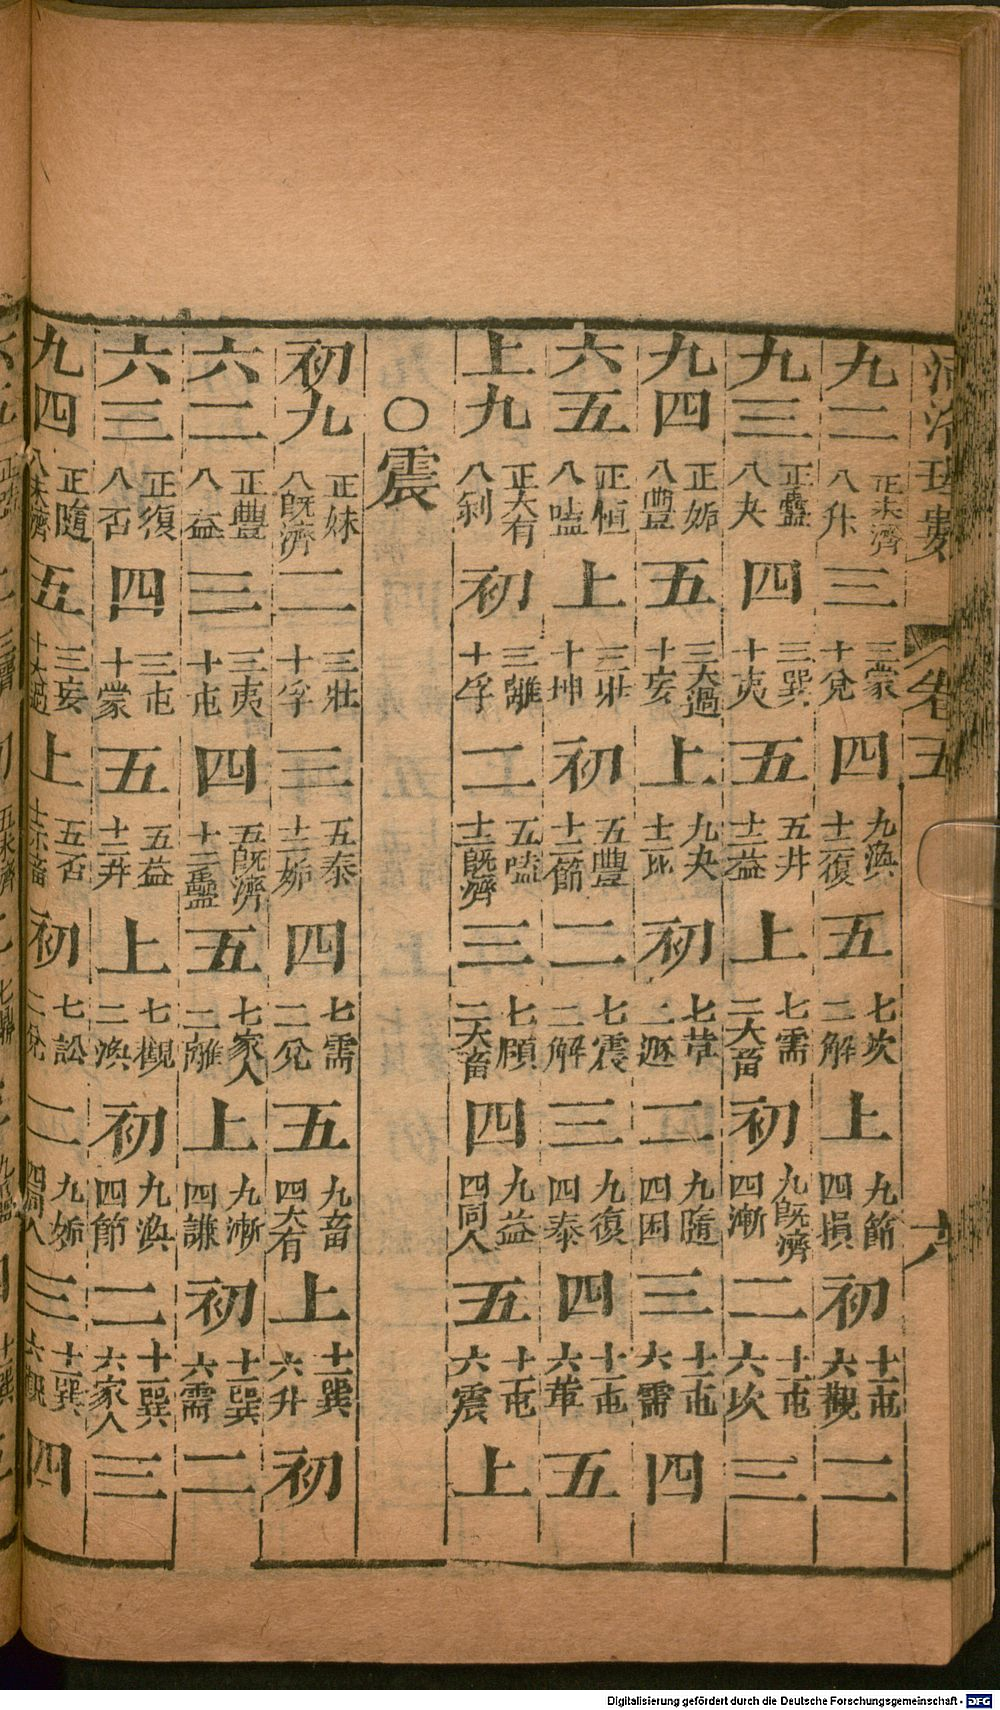 河洛理數 卷五 六
九二 正未濟 八升 三 三蒙 十兌 四 九渙 十二復 五 七坎 二解 上 九節 四損 初 十一屯 六觀 二
九三 正蠱 八夬 四 三巽 十夷 五 五井 十二益 上 七需 二大畜 初 九既濟 四漸 二 十一屯 六坎 三
九四 正姤 八豐 五 三大過 十妄 上 九夬 十二比 初 七革 二遯 二 九隨 四困 三 十一屯 六需 四
六五 正恒 八嗑 上 三壯 十坤 初 五豐 十二節 二 七震 二解 三 九復 四泰 四 十一屯 六革 五
上九 正大有 八剝 初 三離 十孚 二 五嗑 十二既濟 三 七頤 二大畜 四 九益 四同人 五 十一屯 六震 上
○震
初九 正妹 八既濟 二 三壯 十孚 三 五泰 十二姤 四 七需 二兌 五 九畜 四大有 上 十一巽 六升 初
六二 正豐 八益 三 三夷 十屯 四 五既濟 十二蠱 五 七家人 二離 上 九漸 四謙 初 十一巽 六需 二
六三 正復 八否 四 三屯 十蒙 五 五益 十二井 上 七觀 二渙 初 九渙 四節 二 十一巽 六家人 三
九四 正隨 八未濟 五 三妄 十大過 上 五否 初 七訟 二兌 二 九姤 四同人 三 十一巽 四
Digitalisierung gefördert durch die Deutsche Forschungsgemeinschaft - DFG